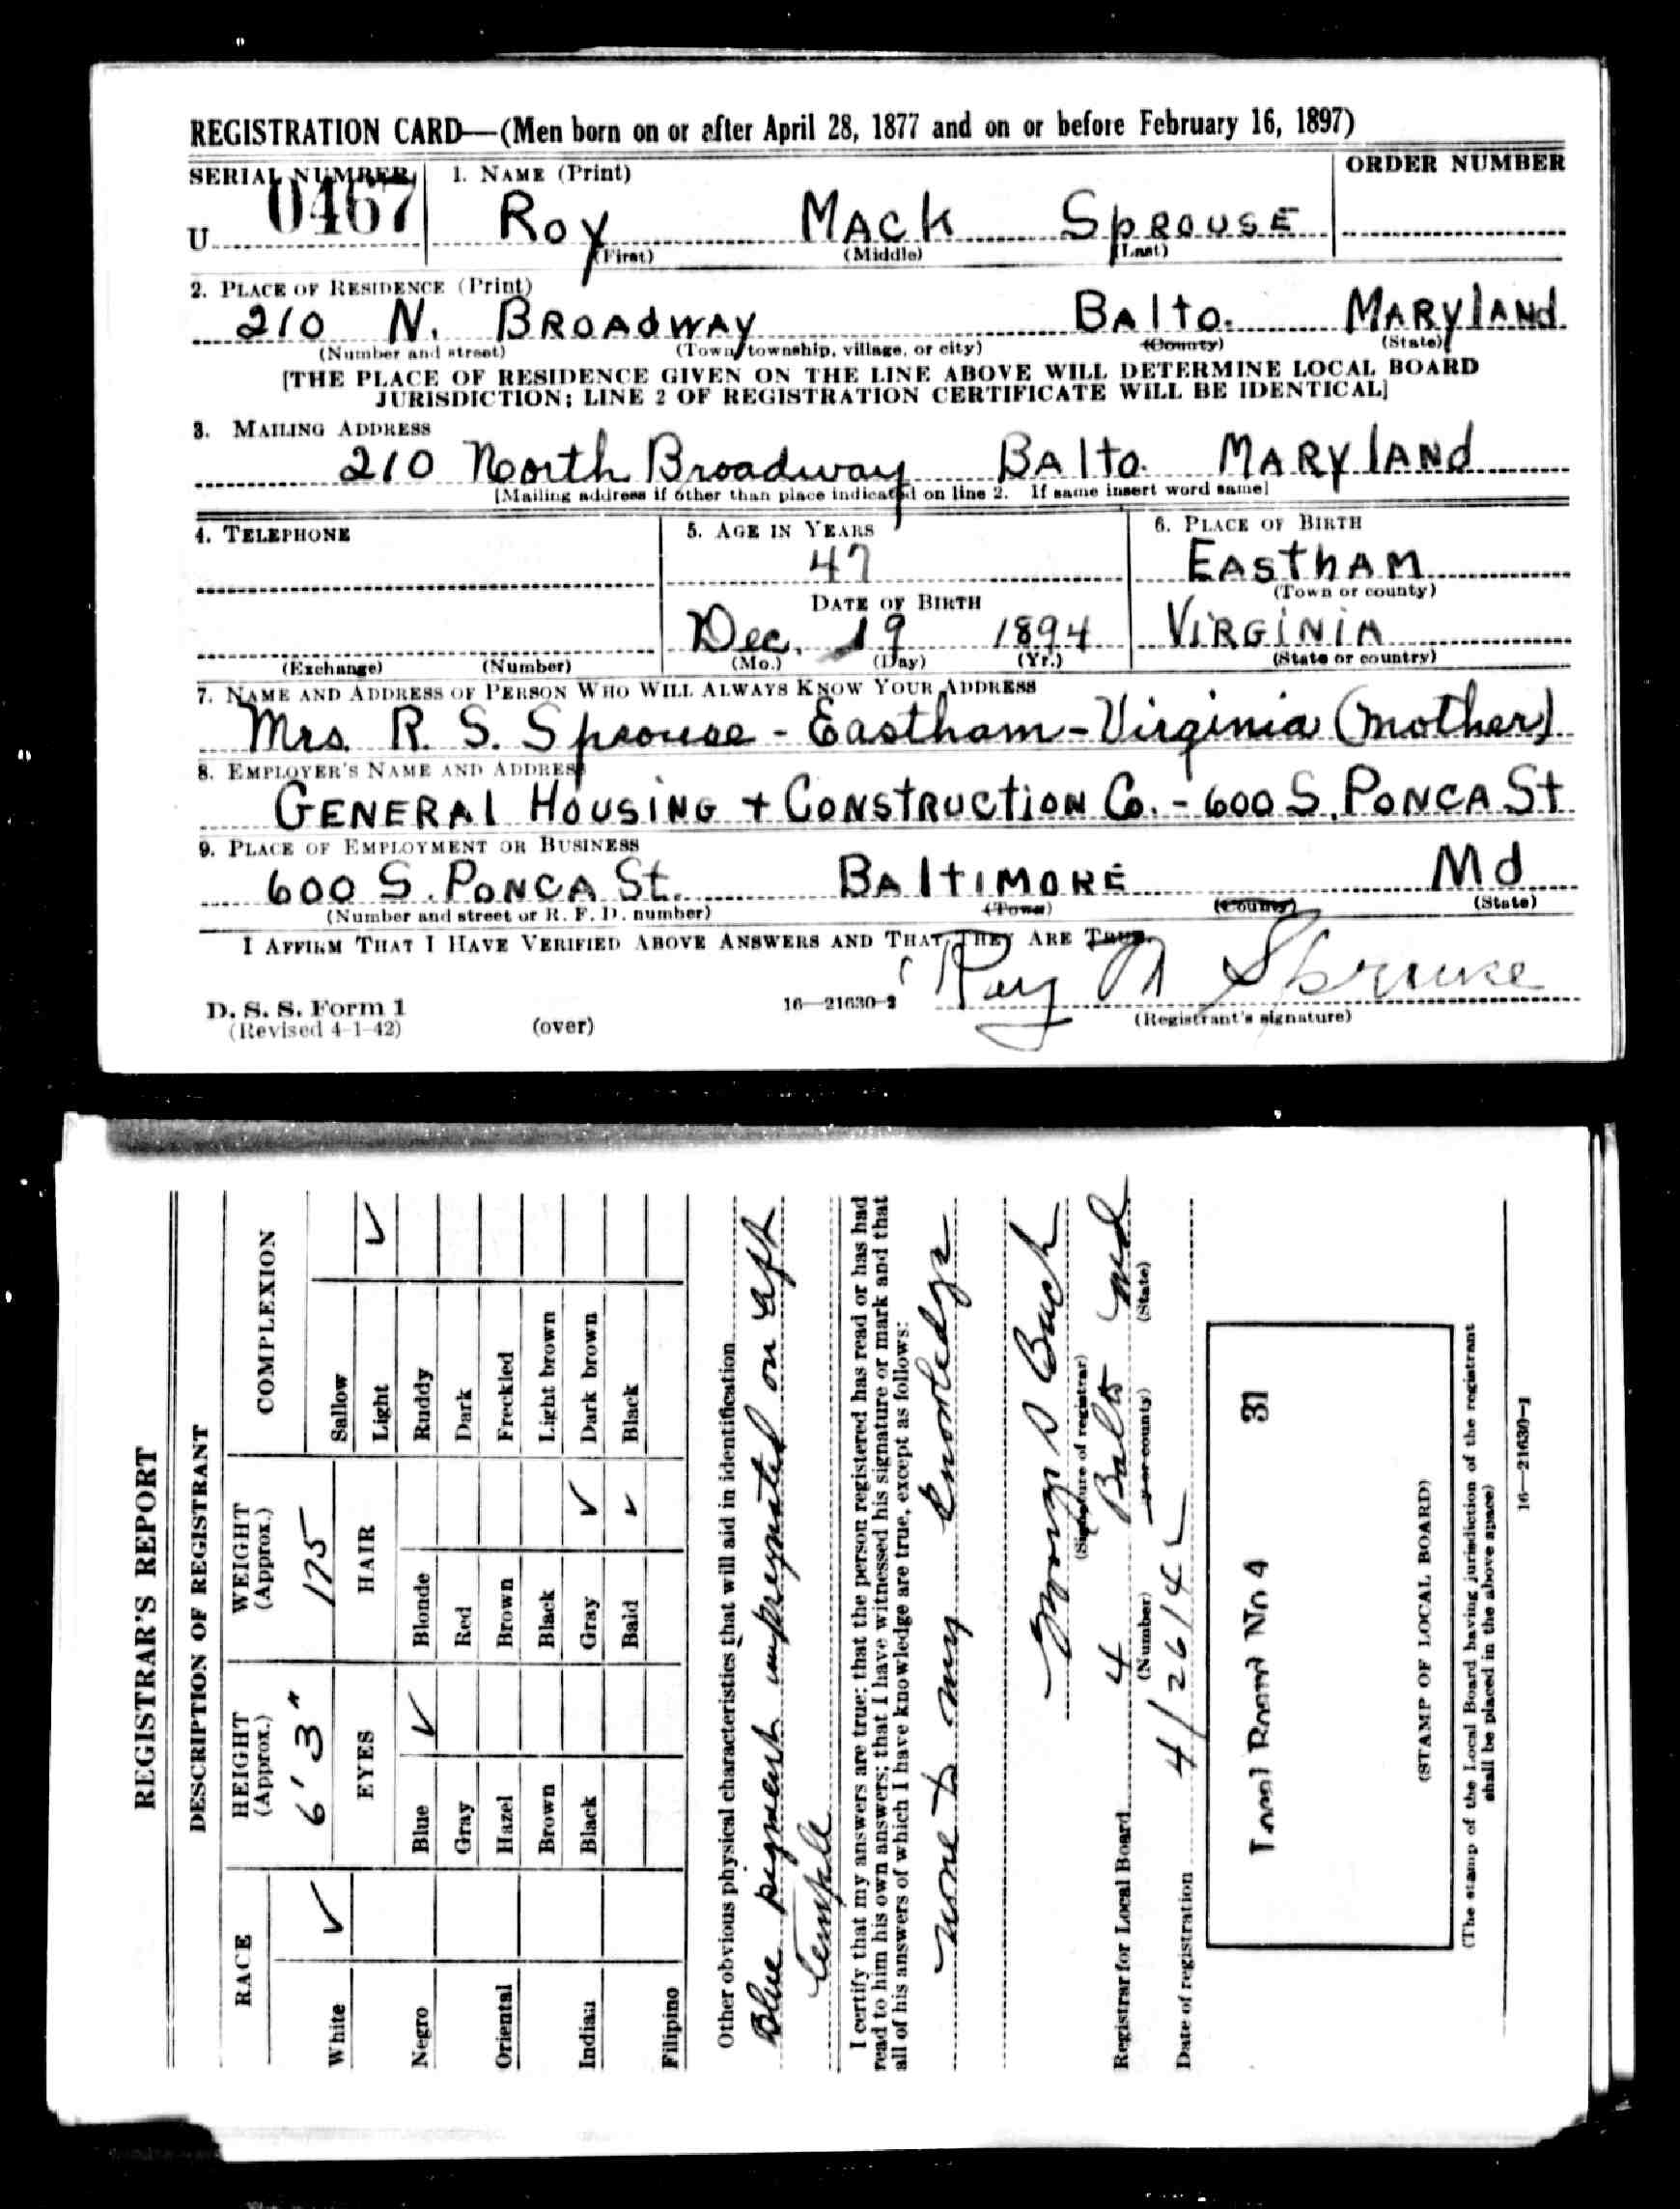 REGISTRATION CARD—(Men born on or after April 28, 1877 and on or before February 16, 1897)
SERIAL NUMBER 1. NAME (Print) ORDER NUMBER
U 0467 Roy Mack Sprouse
(First) (Middle) (Last)
2. PLACE OF RESIDENCE (Print)
210 N. BROADWAY Balto. MARYLAND
(Number and street) (Town, township, village, or city) (County) (State)
[THE PLACE OF RESIDENCE GIVEN ON THE LINE ABOVE WILL DETERMINE LOCAL BOARD
JURISDICTION; LINE 2 OF REGISTRATION CERTIFICATE WILL BE IDENTICAL]
3. MAILING ADDRESS
210 North Broadway Balto. MARYLAND
[Mailing address if other than place indicated on line 2. If same insert word same]
4. TELEPHONE 5. AGE IN YEARS 6. PLACE OF BIRTH
47 EASTHAM
(Town or county)
DATE OF BIRTH
Dec. 19 1894 VIRGINIA
(Exchange) (Number) (Mo.) (Day) (Yr.) (State or country)
7. NAME AND ADDRESS OF PERSON WHO WILL ALWAYS KNOW YOUR ADDRESS
Mrs. R. S. Sprouse - Eastham - Virginia (Mother)
8. EMPLOYER'S NAME AND ADDRESS
GENERAL HOUSING + CONSTRUCTION Co. - 600 S. PONCA St
9. PLACE OF EMPLOYMENT OR BUSINESS
600 S. PONCA St. BALTIMORE Md
(Number and street or R. F. D. number) (Town) (County) (State)
I AFFIRM THAT I HAVE VERIFIED ABOVE ANSWERS AND THAT THEY ARE TRUE.
Roy M Sprouse
D. S. S. Form 1 16—21630-2
(Registrant's signature)
(Revised 4-1-42) (over)
REGISTRAR'S REPORT
DESCRIPTION OF REGISTRANT
RACE HEIGHT (Approx.) WEIGHT (Approx.) COMPLEXION
6' 3" 175
White ✓ Sallow
EYES HAIR Light ✓
Negro Blue ✓ Blonde Ruddy
Gray Red Dark
Oriental Hazel Brown Freckled
Brown Black Light brown
Indian Black Gray ✓ Dark brown
Bald ✓ Black
Filipino
Other obvious physical characteristics that will aid in identification
Blue pigment impregnated on left
temple
I certify that my answers are true; that the person registered has read or has had
read to him his own answers; that I have witnessed his signature or mark and that
all of his answers of which I have knowledge are true, except as follows:
none to my knowledge
(Signature of registrar)
Registrar for Local Board 4 Balto Md.
(Number) (State)
Date of registration 4/26/42
Local Board No 4 31
(STAMP OF LOCAL BOARD)
(The stamp of the Local Board having jurisdiction of the registrant
shall be placed in the above space)
16—21630-1